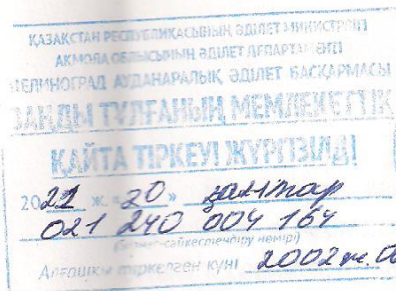 ҚАЗАҚСТАН РЕСПУБЛИКАСЫНЫҢ ӘДІЛЕТ МИНИСТРЛІГІ
АҚМОЛА ОБЛЫСЫНЫҢ ӘДІЛЕТ ДЕПАРТАМЕНТІ
ЦЕЛИНОГРАД АУДАНАРАЛЫҚ ӘДІЛЕТ БАСҚАРМАСЫ
ЗАҢДЫ ТҰЛҒАНЫҢ МЕМЛЕКЕТТІК
ҚАЙТА ТІРКЕУІ ЖҮРГІЗІЛДІ
20 ж. «20» қаңтар
021 240 004 164
(бизнес-сәйкестендіру нөмірі)
Алғашқы тіркелген күні 2002 ж.